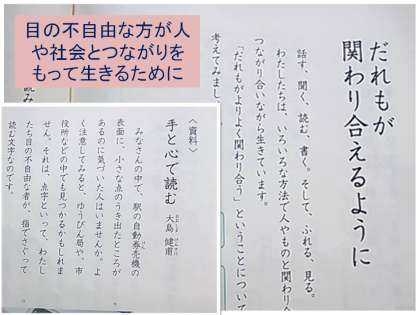 目の不自由な方が人
や社会とつながりを
もって生きるために
だれもが
関わり合えるように
話す、聞く、読む、書く。そして、ふれる、見る。
わたしたちは、いろいろな方法で人やものと関わり
つながり合いながら生きています。
「だれもがよりよく関わり合う」ということについて
考えてみまし
〈資料〉
手と心で読む
大島 健甫
みなさんの中で、駅の自動券売機の
表面に、小さな点のうき出たところが
あるのに気づいた人はいませんか。よ
く注意してみると、ゆうびん局や、市
役所などの中でも見つかるかもしれま
せん。それは、点字といって、わたし
たち目の不自由な者が、指でさぐって
読む文字なのです。